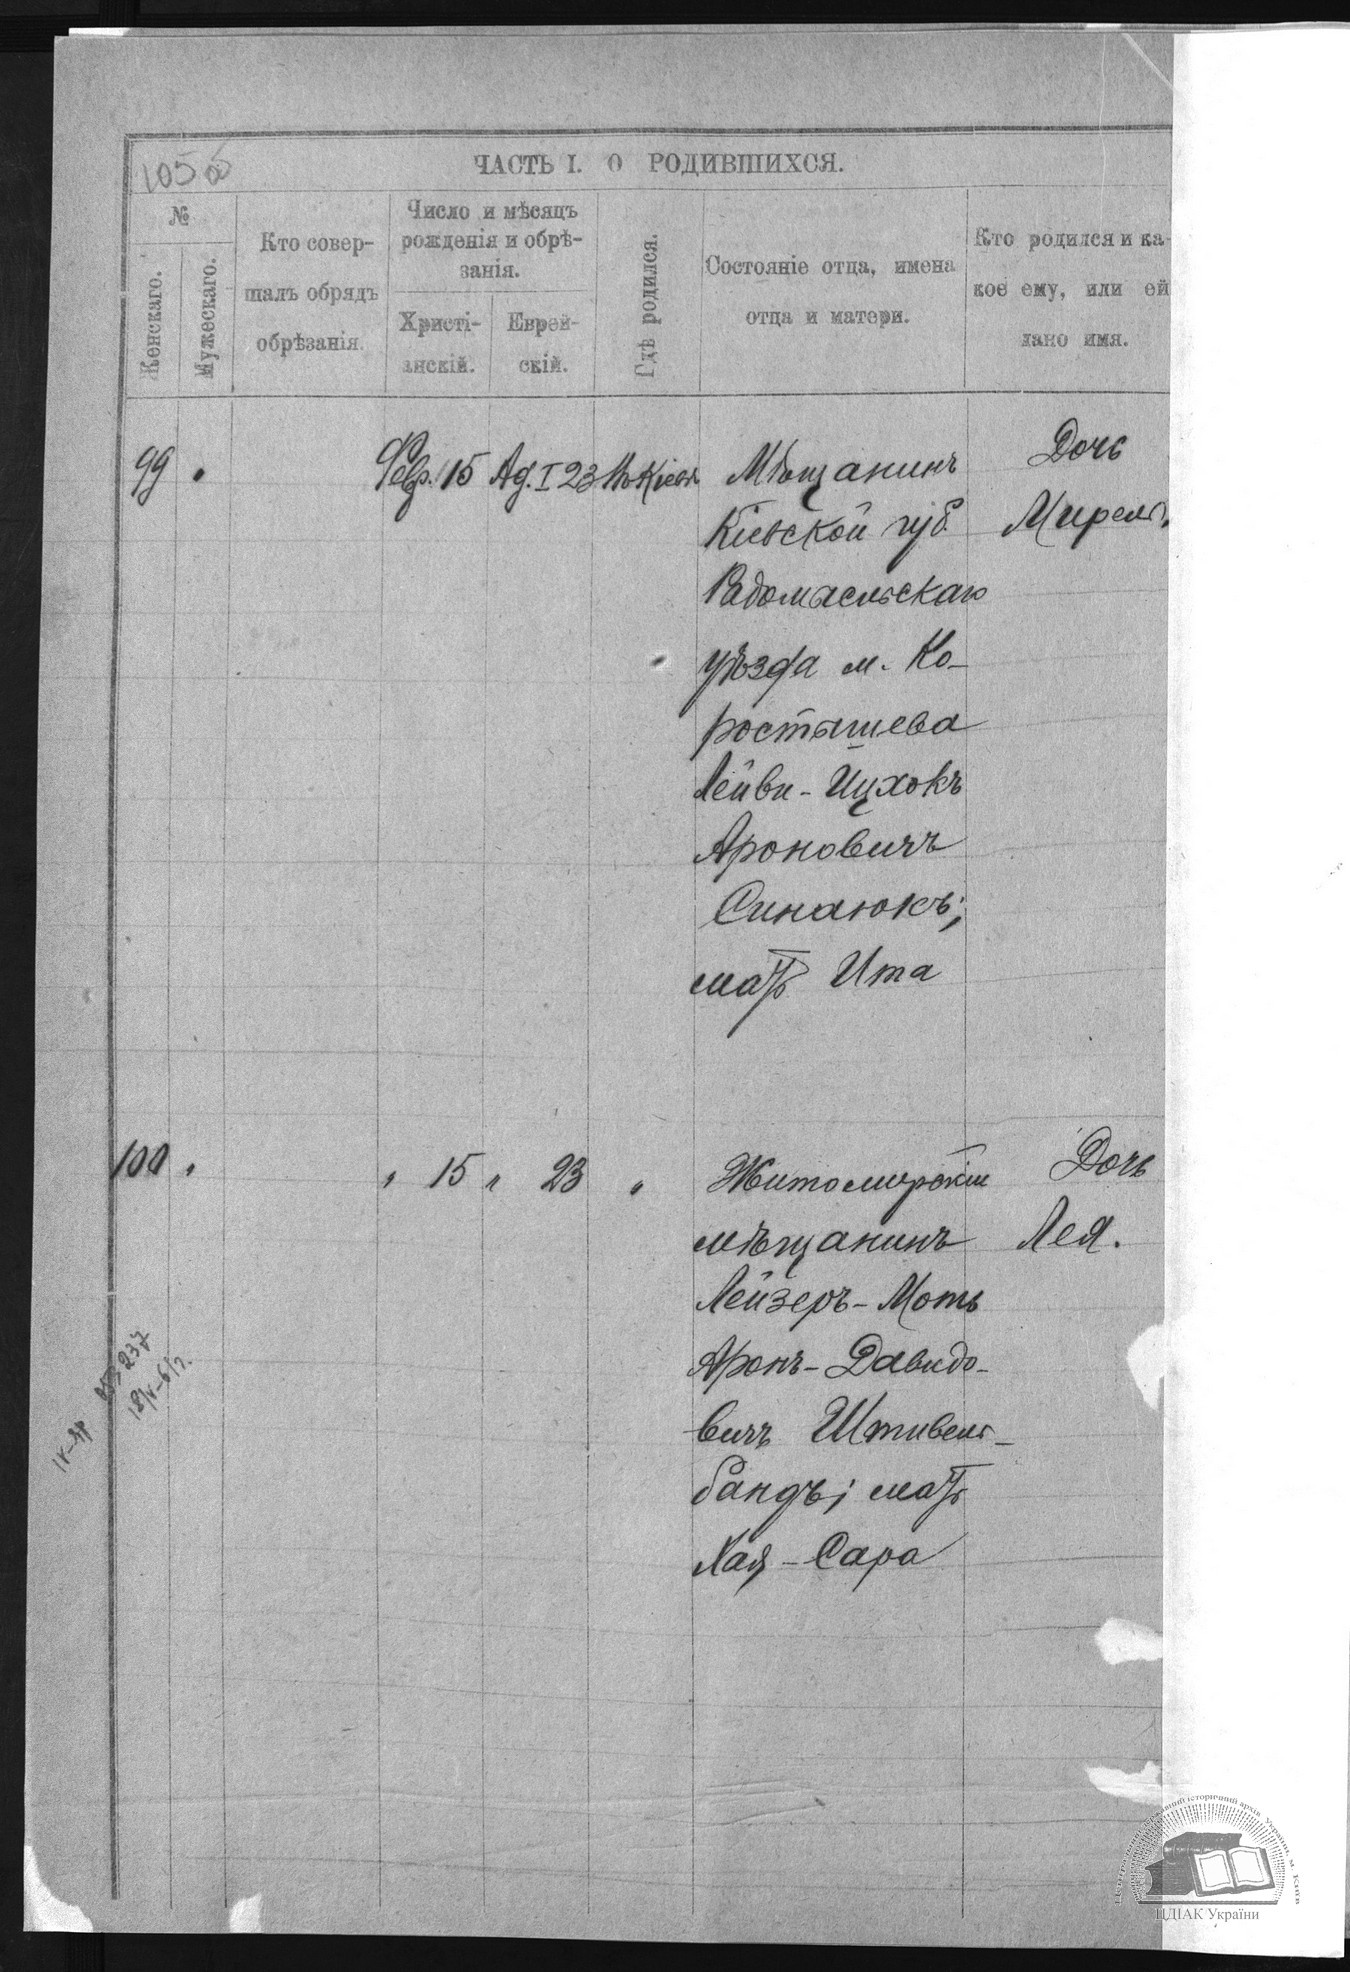 105 об
ЧАСТЬ I. О РОДИВШИХСЯ.
№
Женскаго.
Мужескаго.
Кто совер-
шалъ обрядъ
обрѣзанія.
Число и мѣсяцъ
рожденія и обрѣ-
занія.
Христі-
анскій.
Еврей-
скій.
Гдѣ родился.
Состояніе отца, имена
отца и матери.
Кто родился и ка-
кое ему, или ей
дано имя.
99 Февр. 15 Ад. I 23 Въ Кіевѣ
Мѣщанинъ
Кіевской губ.
Радомысльскаго
уѣзда м. Ко-
ростышева
Лейви-Ицхокъ
Ароновичъ
Синаюкъ;
мать Ита
Дочь
Мирель.
100 " " 15 " 23 "
Житомирскій
мѣщанинъ
Лейзеръ-Моть
Аронъ-Давидо-
вичъ Штивель-
бандъ; мать
Хая-Сара
Дочь
Лея.
237
ЦДІАК України